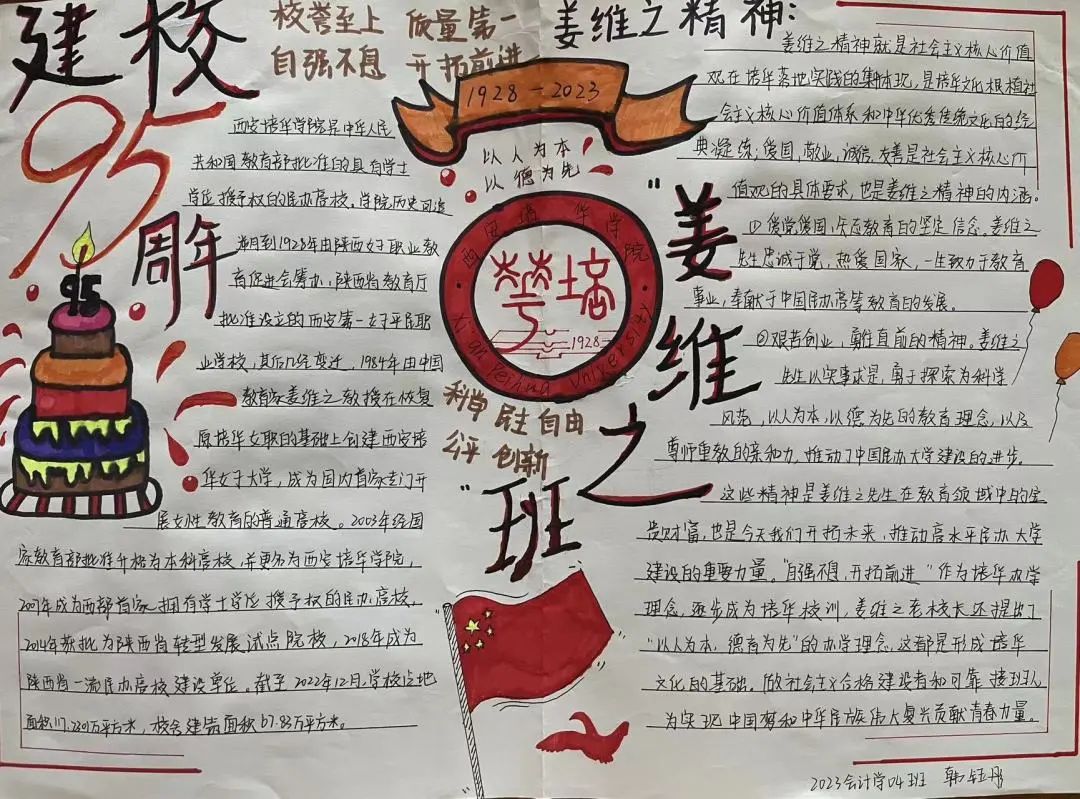 建校
95
周年
校誉至上 质量第一
自强不息 开拓前进
1928-2023
以人为本
以德为先
西安培华学院
华培
1928
Xi'an Peihua University
科学 民主 自由
公平 创新
"姜维之"
班
95
西安培华学院是中华人民
共和国教育部批准的具有学士
学位授予权的民办高校。学院历史可追
溯到1928年由陕西女子职业教
育促进会筹办,陕西省教育厅
批准设立的西安第一女子平民职
业学校,其后几经变迁,1984年由中国
教育家姜维之教授在恢复
原培华女职的基础上创建西安培
华女子大学,成为国内首家专门开
展女性教育的普通高校。2003年经国
家教育部批准升格为本科高校,并更名为西安培华学院,
2007年成为西部首家拥有学士学位授予权的民办高校,
2014年获批为陕西省转型发展试点院校,2018年成为
陕西省一流民办高校建设单位。截至2022年12月,学校占地
面积117.2301万平方米,校舍建筑面积67.83万平方米。
姜维之精神:
姜维之精神就是社会主义核心价值
观在培华落地实践的集中体现,是培华文化根植社
会主义核心价值体系和中华优秀传统文化的经
典凝练;爱国,敬业,诚信,友善是社会主义核心价
值观的具体要求,也是姜维之精神的内涵。
①爱党爱国,矢志教育的坚定信念。姜维之
先生忠诚于党,热爱国家,一生致力于教育
事业,奉献于中国民办高等教育的发展。
②艰苦创业,勇往直前的精神。姜维之
先生以实事求是,勇于探索为科学
风范,以人为本,以德为先的教育理念,以及
尊师重教的亲和力,推动了中国民办大学建设的进步。
这些精神是姜维之先生在教育领域中的宝
贵财富,也是今天我们开拓未来,推动高水平民办大学
建设的重要力量。"自强不息,开拓前进"作为培华办学
理念,逐步成为培华校训,姜维之老校长还提出了
"以人为本,德育为先"的办学理念,这都是形成培华
文化的基础。做社会主义合格建设者和可靠接班人
为实现中国梦和中华民族伟大复兴贡献青春力量。
2023会计学04班 韩钰彤